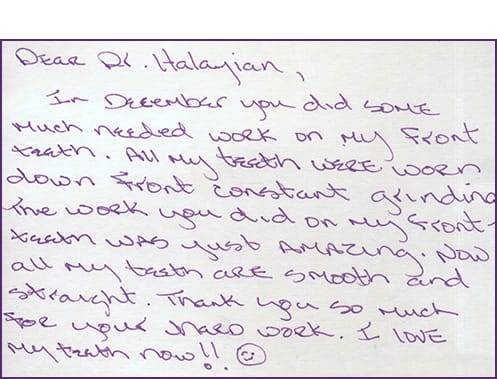 Dear Dr. Halajian,
In December you did some
much needed work on my front
teeth. All my teeth were worn
down front constant grinding
The work you did on my front-
teeth was just AMAZING. Now
all my teeth are smooth and
straight. Thank you so much
for your hard work. I love
my teeth now!! ☺